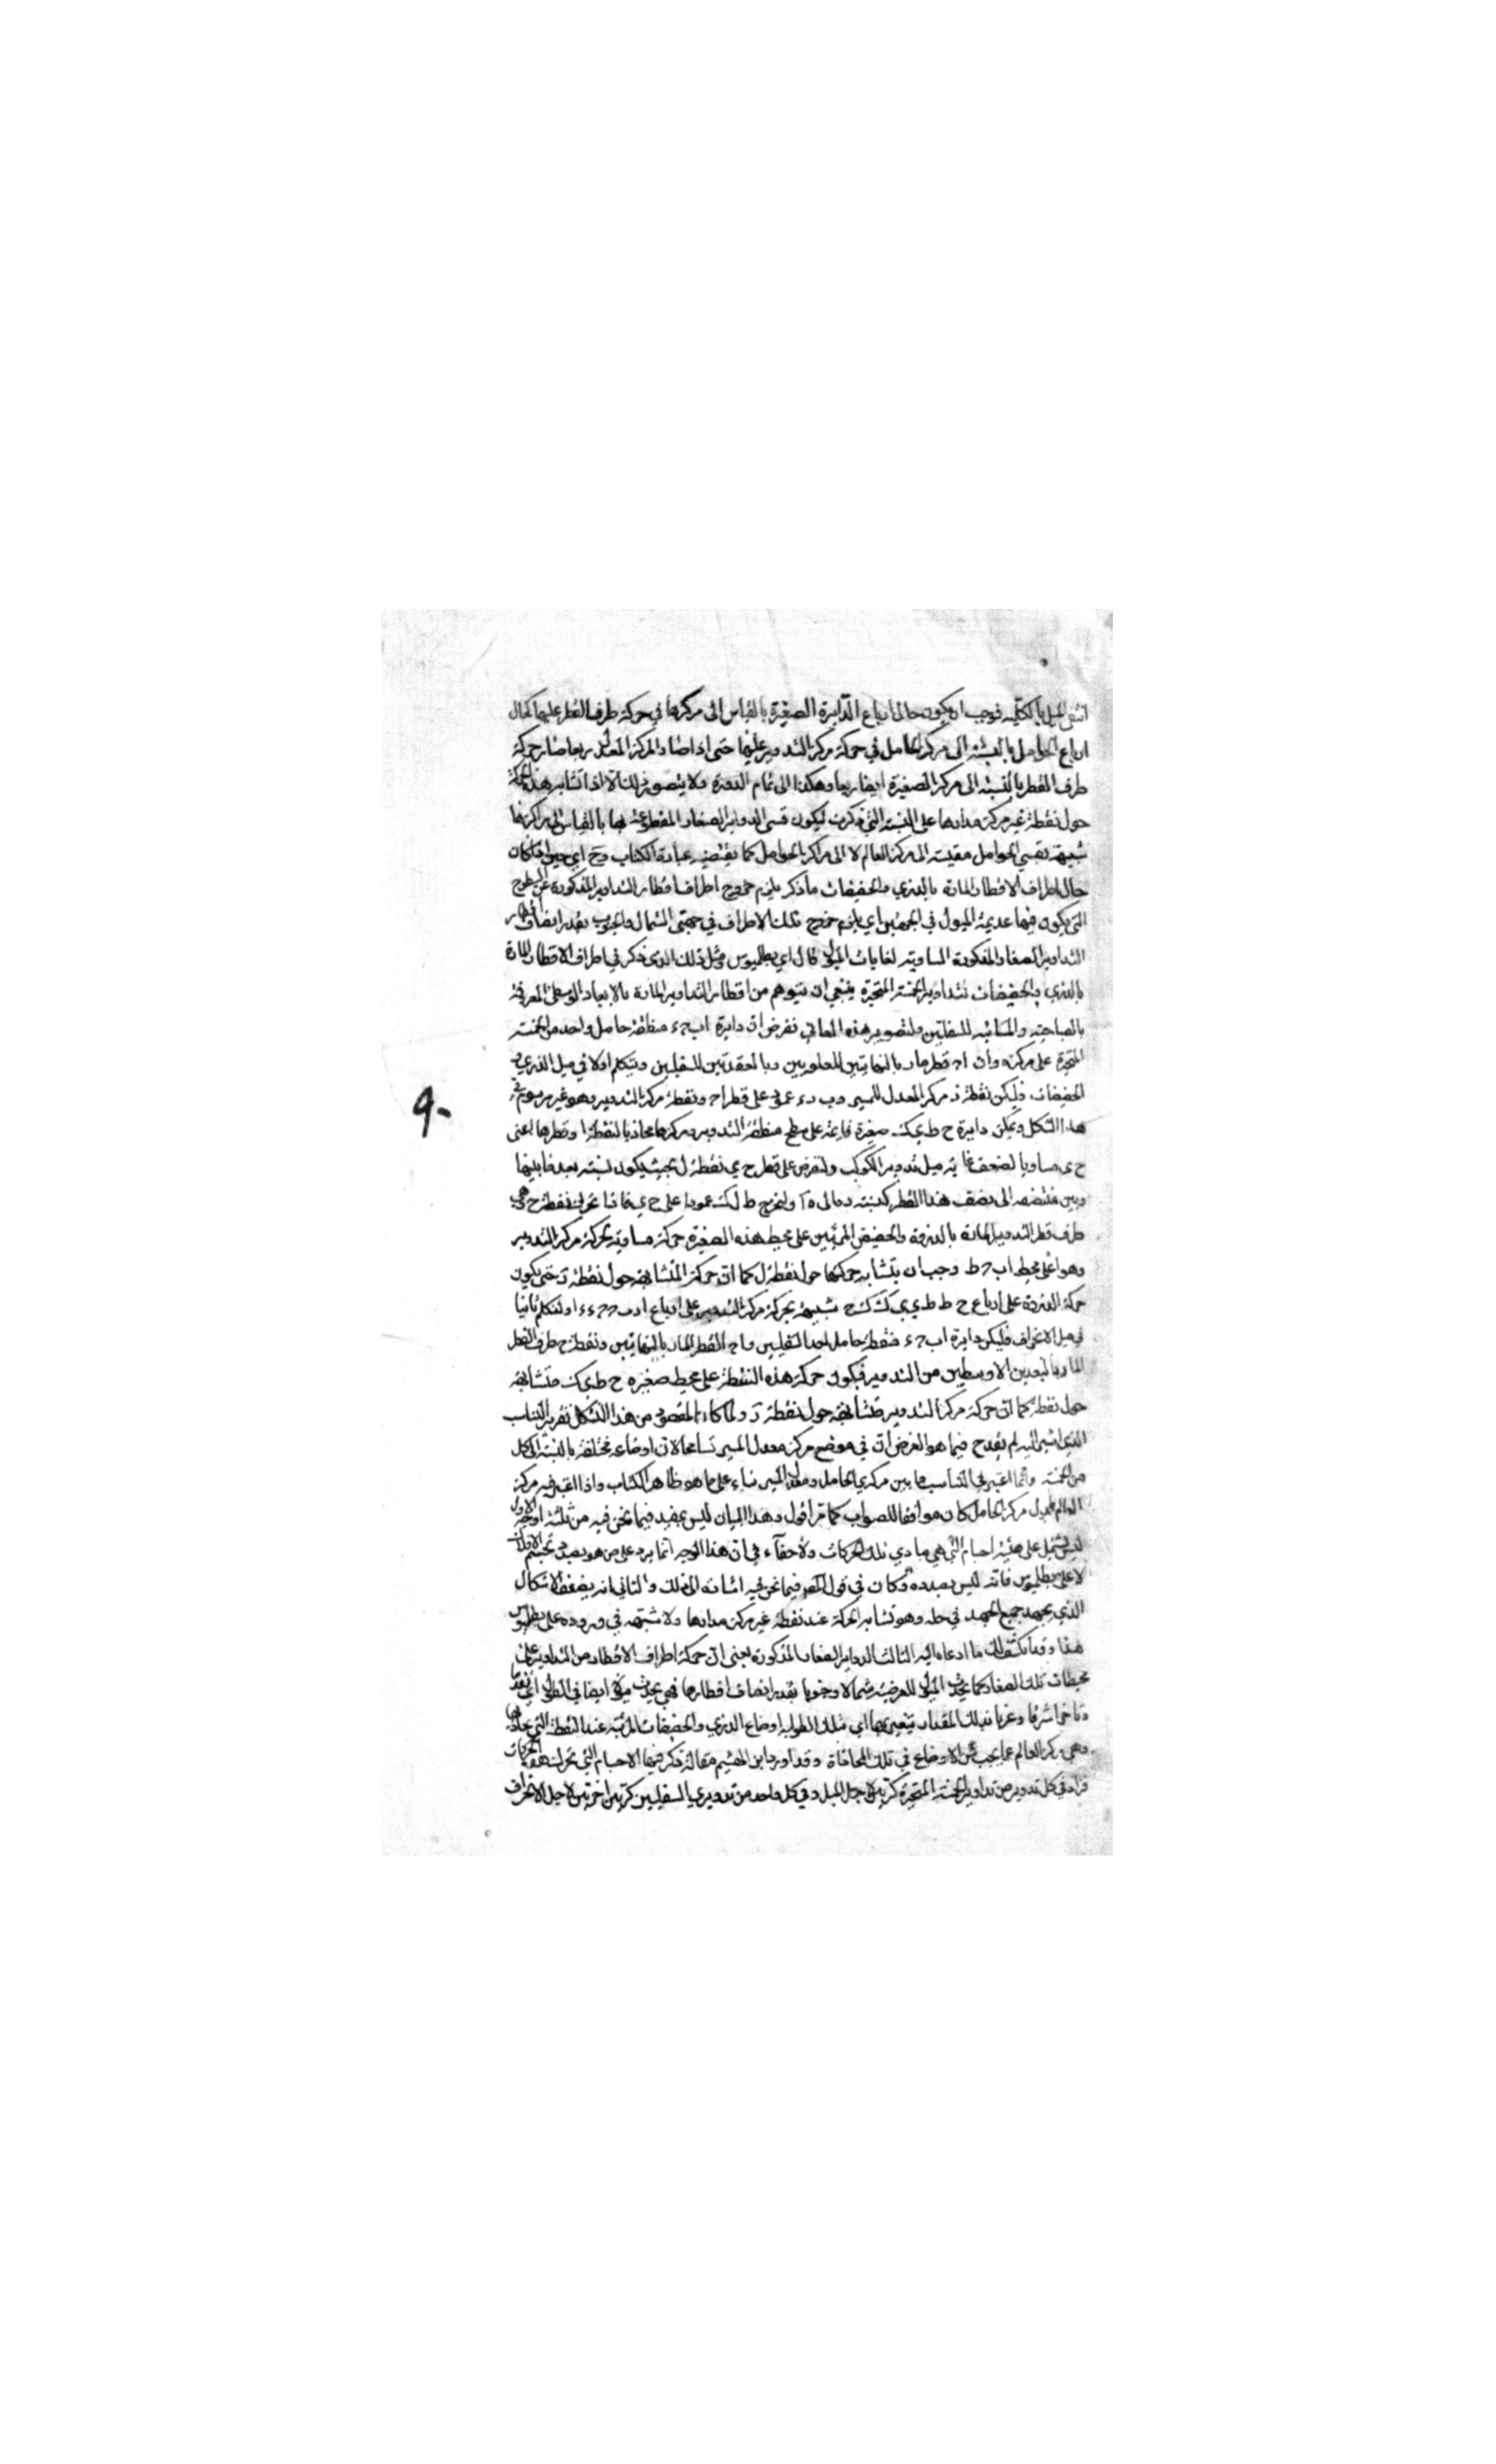 انتفى الميل بالكلية فوجب ان يكون حال ارباع الدايرة الصغيرة بالقياس الى مركزها في حركة طرف القطر عليها كحال
ارباع الحوامل بالنسبة الى مركز الحامل في حركة مركز التدوير عليها حتى اذا صار المركز المعدل ربعا صار حركة
طرف القطر بالنسبة الى مركز الصغيرة ايضا ربعا وهكذا الى تمام الدورة ولا يتصور ذلك الا اذا تشابه هذه الحركة
حول نقطة غير مركز مدارها على النسبة التي ذكرت ليكون قسي الدواير الصغار المقطوعة بها بالقياس الى مراكزها
شبيهة بقسي الحوامل مقيسة الى مركز العالم لا الى مراكز الحوامل كما يقتضيه عبارة الكتاب وح اي حين اذ كان
حال اطراف الاقطار المارة بالذرى والحضيضات ما ذكر يلزم خروج اطراف اقطار التداوير المذكورة عن السطوح
التي يكون فيها عديمة الميول في الجهتين اي يلزم خروج تلك الاطراف في جهتى الشمال والجنوب بقدر انصاف اقطار
التداوير الصغار المذكورة المساوية لغايات الميول قال اي بطلميوس ومثل ذلك الذي ذكر في اطراف الاقطار المارة
بالذرى والحضيضات لتداوير الخمسة المتحيرة ينبغي ان يتوهم من اقطار التداوير المارة بالابعاد الوسطى المعروفة
بالصباحية والمسائية للسفليين ولتصوير هذه المعاني نفرض ان دايرة اب ح ء منطقة حامل واحد من الخمسة
المتحيرة على مركز ه وان اح قطر مار بالنهايتين للعلويين وبالعقدتين للسفليين ونتكلم اولا في ميل الذرى و
الحضيضات وليكن نقطة ز مركز المعدل للمسير وب ز ء عمود على قطر اح ونقطة مركز التدوير وهو غير مرسوم في
هذا الشكل وليكن دايرة ح ط ي ك صغيرة قائمة على سطح منطقة التدوير ومركزها محاذيا لنقطة ا وقطرها اعني
ح ي مساويا لضعف غاية ميل تدوير الكوكب ولنفرض على قطر ح ي نقطة ل بحيث يكون نسبة بعد ما بينها
وبين منتصفه الى نصف هذا القطر كنسبة ه ز الى ه ا ولنخرج ط ل ك عمودا على ح ي فاذا تحركت نقطة ح وهي
طرف قطر التدوير المارة بالذروة والحضيض المرئيين على محيط هذه الصغيرة حركة مساوية لحركة مركز التدوير
وهو ا على محيط اب ح ط وجب ان يتشابه حركتها حول نقطة ل كما ان حركة ا المتشابهة حول نقطة ز حتى يكون
حركة الذروة على ارباع ح ط ط ي ي ك ك ح شبيهة بحركة مركز التدوير على ارباع اب ب ح ح ء ء ا ولنتكلم ثانيا
في ميل الانحراف فليكن دايرة اب ح ء منطقة حامل احد السفليين واح القطر المار بالنهايتين ونقطة ح طرف القطر
المار بالبعدين الاوسطين من التدوير فيكون حركة هذه النقطة على محيط صغيرة ح ط ي ك متشابهة
حول نقطة كما ان حركة مركز التدوير متشابهة حول نقطة ز ولما كان المقصود من هذا الشكل تقرير التناسب
الذي اشير اليه لم يقدح فيما هو الغرض ان في موضع مركز معدل المسير تسامحا لان اوضاعه مختلفة بالنسبة الى كل
من الخمسة وانما اعتبر في التناسب ما بين مركزي الحامل ومعدل المسير بناء على ما هو ظاهر الكتاب واذا اعتبر فيه مركز
العالم بدل مركز الحامل كان موافقا للصواب كما مر اقول وهذا البيان ليس بمفيد فيما نحن فيه من ثلثة اوجه الاول
ليس يشتمل على هيئة اجسام التي هي مبادي تلك الحركات ولا خفاء في ان هذا الوجه انما يرد على من هو بصدد تجسيم الافلاك
لا على بطلميوس فانه ليس بصدده وكان في قول المص فيما نحن فيه اشارة الى ذلك والثاني انه يضعف الاشكال
الذي يجهد جميع الجهد في حله وهو تشابه الحركة عند نقطة غير مركز مدارها ولا شبهة في وروده على بطلميوس
هذا وقد انكشف لك ما ادعاه اليه الثالث الدواير الصغار المذكورة يعنى ان حركة اطراف الاقطار من التداوير على
محيطات تلك الصغار كما يحدث الميول العرضية شمالا وجنوبا بقدر انصاف اقطارها فهي يحدث ميولا ايضا في الطول اي تقدما
وتاخرا شرقا وغربا بذلك المقدار يتغير بها اي بتلك الطولية اوضاع الذرى والحضيضات المرئية عند النقطة التي يحاذيها
وهي مركز العالم عما يجب من الاوضاع في تلك المحاذاة وقد اورد ابن الهيثم مقالة ذكر فيها الاجسام التي تحرك هذه الحركات
فزاد في كل تدوير من تداوير الخمسة المتحيرة كرتين لاجل الميل وفي كل واحد من تدويري السفليين كرتين اخرتين لاجل الانحراف
٩٠